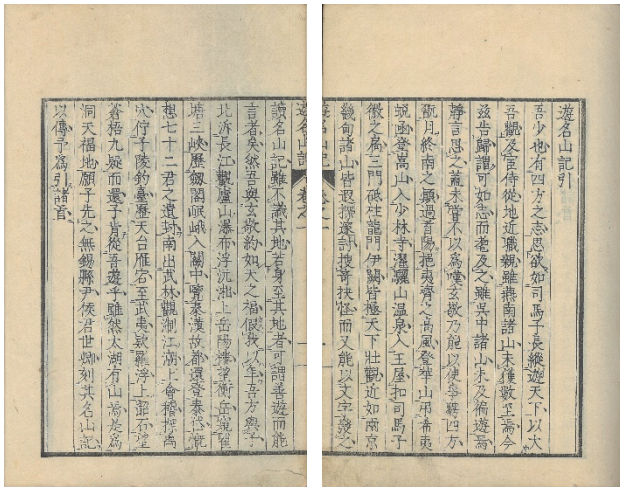 遊名山記引
吾少也有四方之志思欲如司馬子長縱遊天下以大
吾觀及宦侍從地近職親雖燕南諸山未獲數至焉今
玆告歸謂可如志而耄及之雖其中諸山未及徧遊焉
靜言思之蓋未嘗不以爲嘆玄敬乃能以使事騁四方
翫月終南之巔過首陽挹夷齊之高風登華山弔希夷
蛻函登嵩山入少林寺濯驪山溫泉入王屋扣司馬子
微之居三門砥柱龍門伊闕皆極天下壯觀近如南京
畿甸諸山皆遐探邃討搜奇抉怪而又能以文字發之
遊名山記 卷之一
讀名山記雖不識其地若身至其地者可謂善遊而能
言者矣然吾與玄敬約如天之福假我以年吾方與子
北泝長江觀廬山瀑布浮沅湘上岳陽樓望衡岳窺瞿
塘三峽歷劔閣岷峨入關中覽秦漢故都還登泰岱慨
想七十二君之遺封南出武林觀浙江濤上會稽探禹
穴佇子陵釣臺歷天台雁宕至武夷欵羅浮上韶石望
蒼梧九疑而還子肯從吾遊乎雖然太湖有山焉是爲
洞天福地願子先之無錫縣尹侯君世卿刻其名山記
以傳予爲引諸首